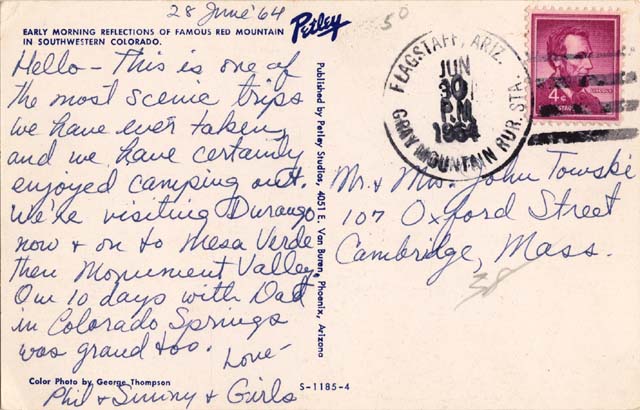 28 June '64
EARLY MORNING REFLECTIONS OF FAMOUS RED MOUNTAIN
IN SOUTHWESTERN COLORADO.
Petley
Hello - This is one of
the most scenic trips
we have ever taken,
and we have certainly
enjoyed camping out.
We're visiting Durango
now + on to Mesa Verde
then Monument Valley.
Our 10 days with Dad
in Colorado Springs
was grand too.
Love -
Phil + Sunny + Girls
Color Photo by George Thompson
Published by Petley Studios, 4051 E. Van Buren, Phoenix, Arizona
S-1185-4
50
FLAGSTAFF, ARIZ.
JUN
30
P.M.
1964
GRAY MOUNTAIN RUR. STA.
4¢
Mr. + Mrs. John Towski
107 Oxford Street
Cambridge, Mass.
38